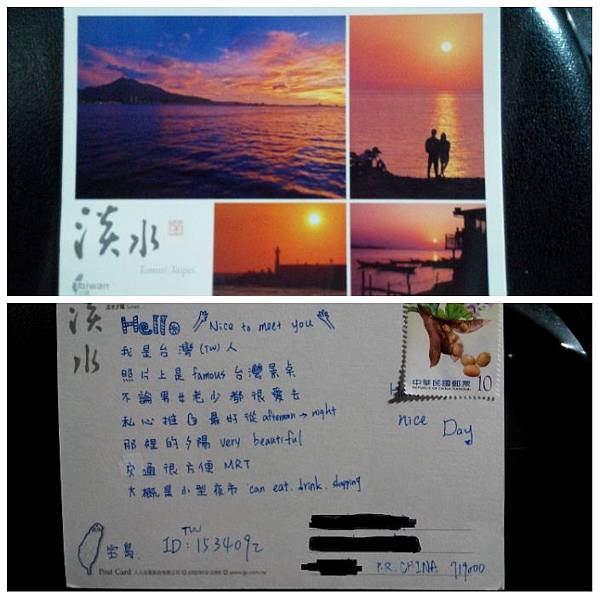 淡水
Tamsui, Taipei.
Taiwan
淡水
Hello Nice to meet you
我是台灣(TW)人
照片上是famous台灣景点
不論男女老少都很愛去
私心推 最好從afternoon→night
那裡的夕陽 very beautiful
交通很方便 MRT
大概是小型夜市 can eat. drink. shopping
中華民國郵票
REPUBLIC OF CHINA (TAIWAN)
10
nice Day
宝島
TW
ID: 1534092
Post Card
P.R. CHINA 719000